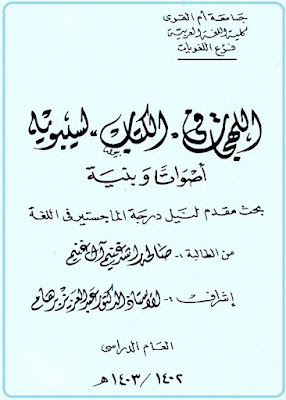 جامعة أم القرى
كلية اللغة العربية
فرع اللغويات
اللهجات في "الكتاب" لسيبويه
أصواتًا وبنية
بحث مقدم لنيل درجة الماجستير في اللغة
من الطالبة :- صالحة راشد غنيم آل غنيم
إشراف :- الأستاذ الدكتور عبد العزيز برهام
العام الدراسى
١٤٠٢ / ١٤٠٣ هـ